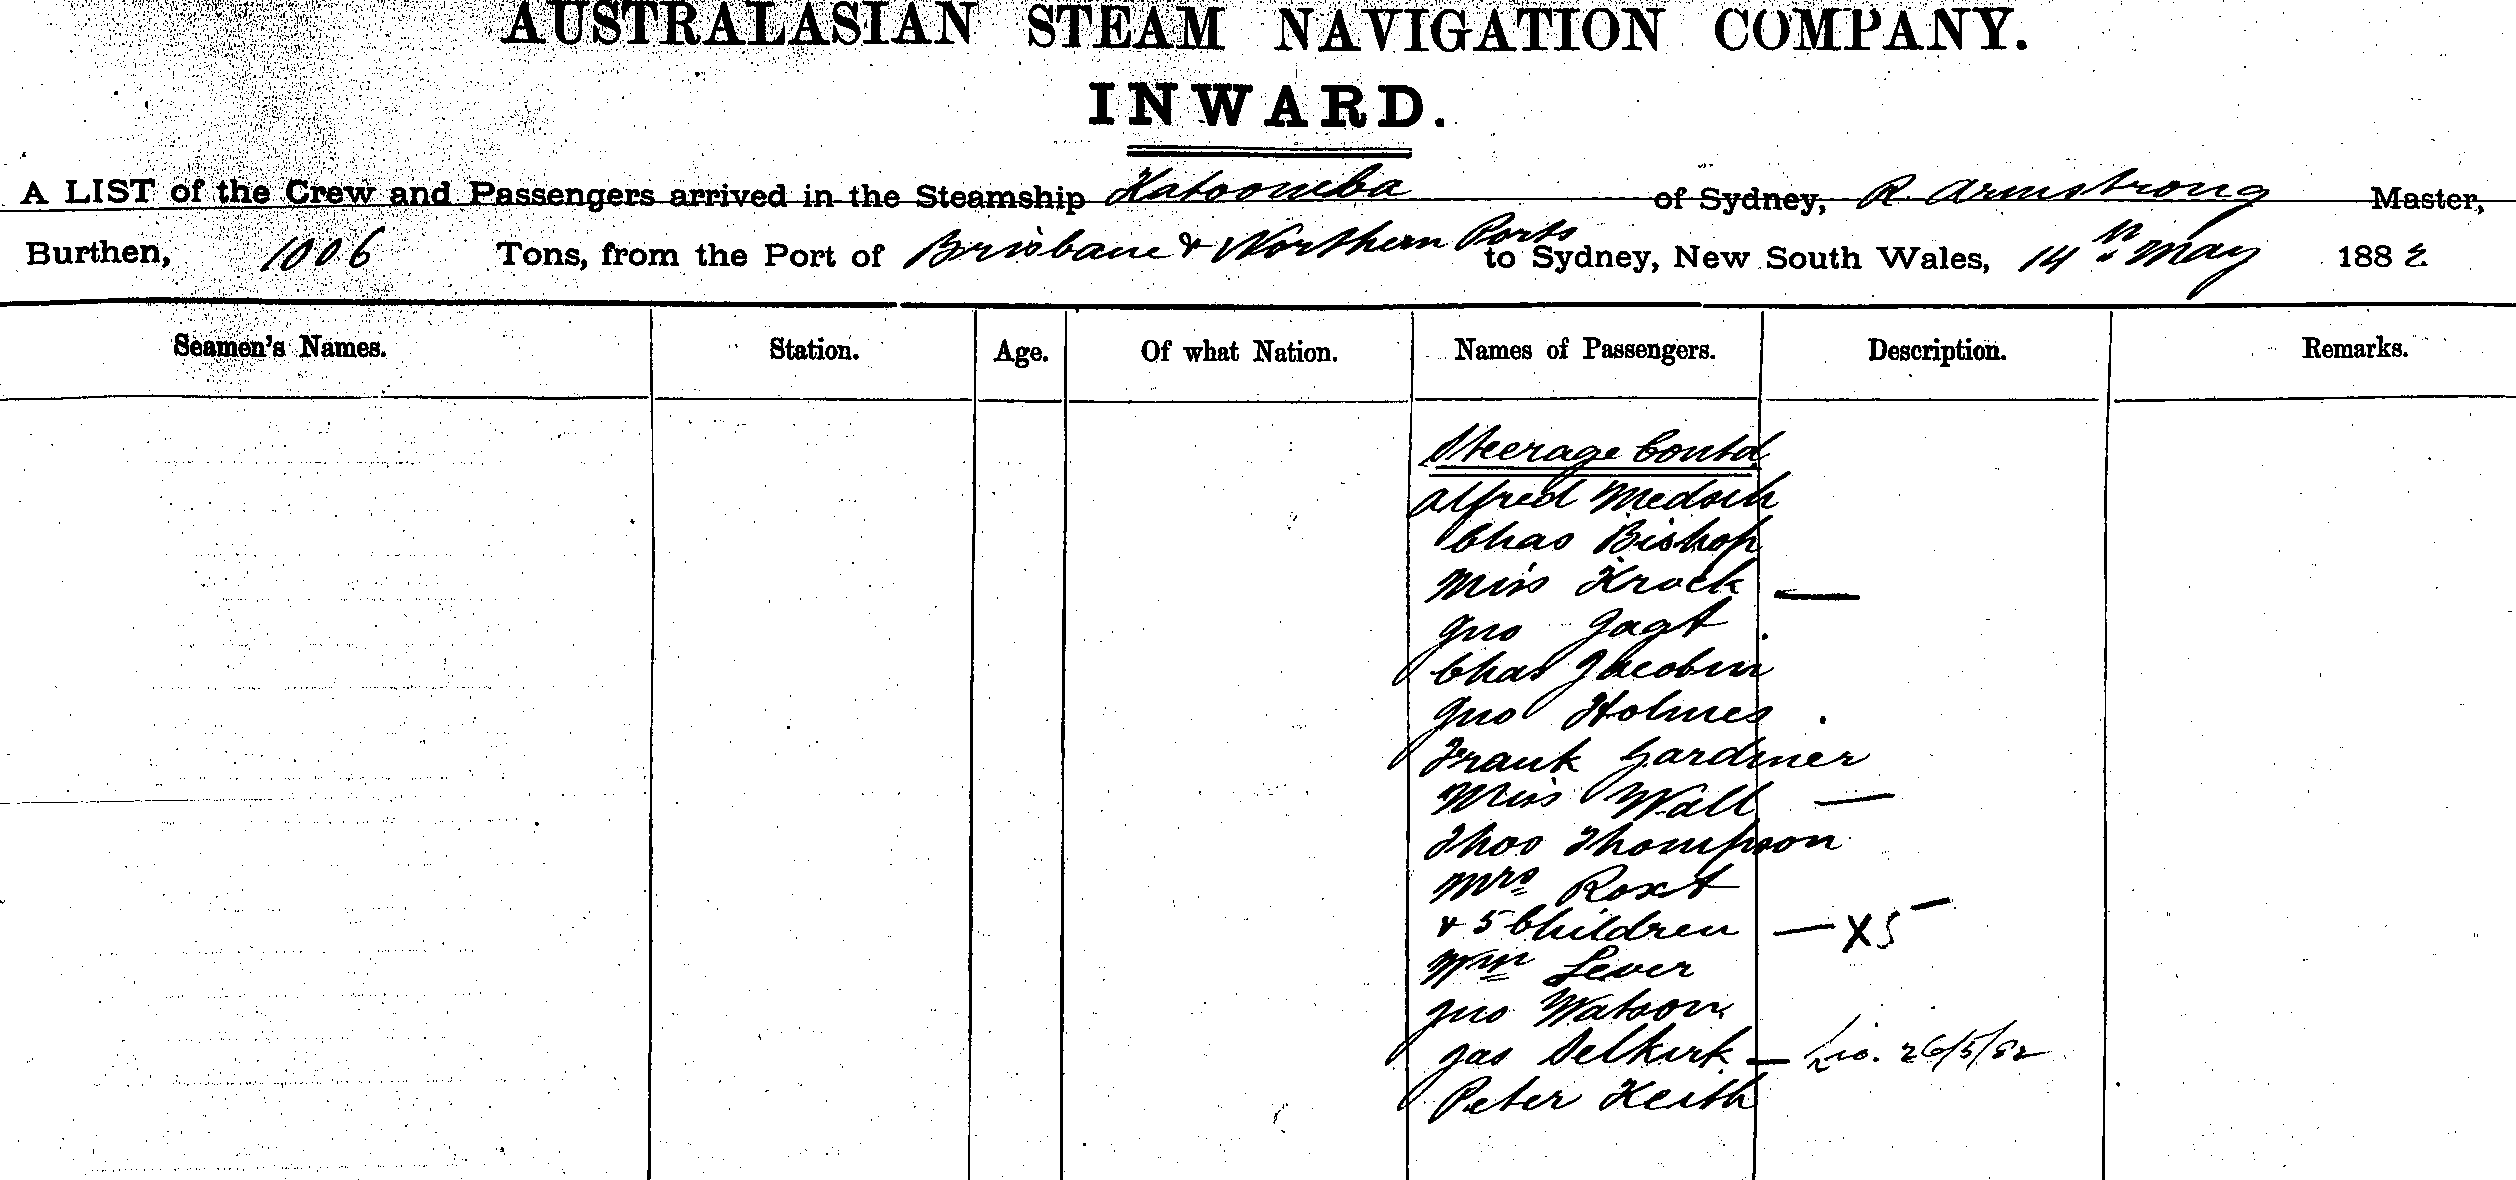 AUSTRALASIAN STEAM NAVIGATION COMPANY.
INWARD.
A LIST of the Crew and Passengers arrived in the Steamship Katoomba of Sydney, R. Armstrong Master,
Burthen, 1006 Tons, from the Port of Brisbane & Northern Ports to Sydney, New South Wales, 14th May 1882
Seamen's Names. Station. Age. Of what Nation. Names of Passengers. Description. Remarks.
Steerage Contd
Alfred
Chas Bishop
Miss Krock —
Jno Jagt
Chas Jacobin
Jno Holmes
Frank Gardiner
Miss Wall —
Thos Thompson
Mrs Roxt
& 5 Children — X5 —
Wm Lever
Jno Watson
Jas Selkirk — 26/5/82
Peter Keith